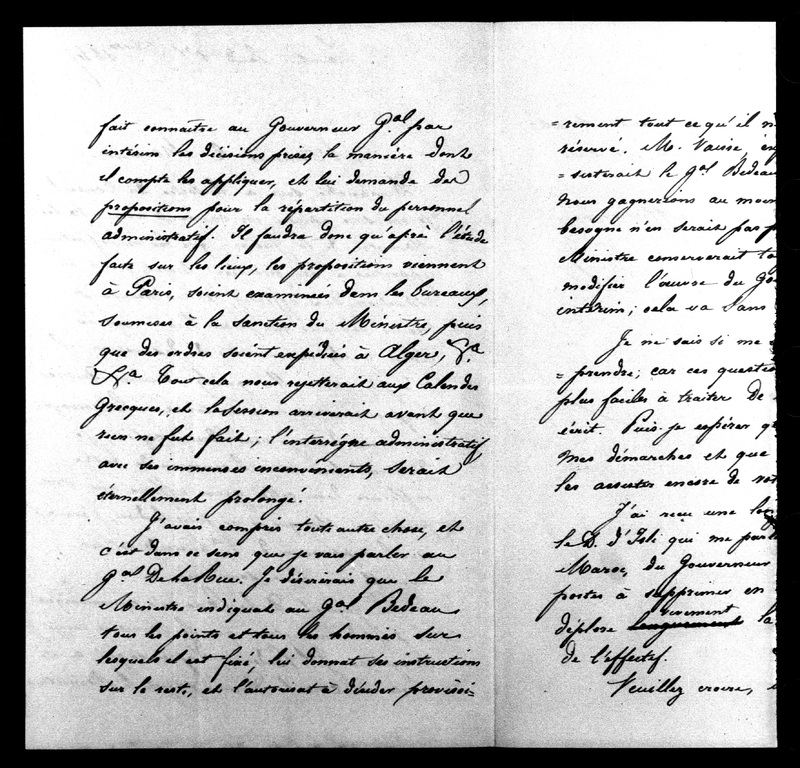 fait connaître au Gouverneur G.al par
intérim les décisions prises, la manière dont
il compte les appliquer, et lui demande des
propositions pour la répartition du personnel
administratif. Il faudra donc qu'après l'étude
faite sur les lieux, les propositions viennent
à Paris, soient examinées dans les bureaux,
soumises à la sanction du Ministre, puis
que des ordres soient expédiés à Alger, &.a
&.a Tout cela nous rejetterait aux Calendes
Grecques, et la session arriverait avant que
rien ne fut fait; l'interrègne administratif
avec ses immenses inconvénients, serait
éternellement prolongé.
J'avais compris toute autre chose, et
c'est dans ce sens que je vais parler au
g.al De la Rue. Je désirerais que le
Ministre indiquat au G.al Bedeau
tous les points et tous les hommes sur
lesquels il est fixé, lui donnat ses instructions
sur le reste, et l'autorisat à décider provisoi=
=rement tout ce qu'il n
réservé. M. Vaisse,
=sisterait le g.al Bedeau
nous gagnerions au moin
besogne n'en serait pas p
Ministre conserverait to
modifier l'œuvre du Go
intérim; cela va sans
Je ne sais si me
=prendre; car ces questio
plus faciles à traiter de
écrit. Puis-je espérer q
mes démarches et que
les assister encore de vot
J'ai reçu une lon
le D. d'Isli qui me parl
Maroc, du Gouverneur
postes à supprimer en
vivement
déplore longuement la
de l'effectif.
Veuillez croire,